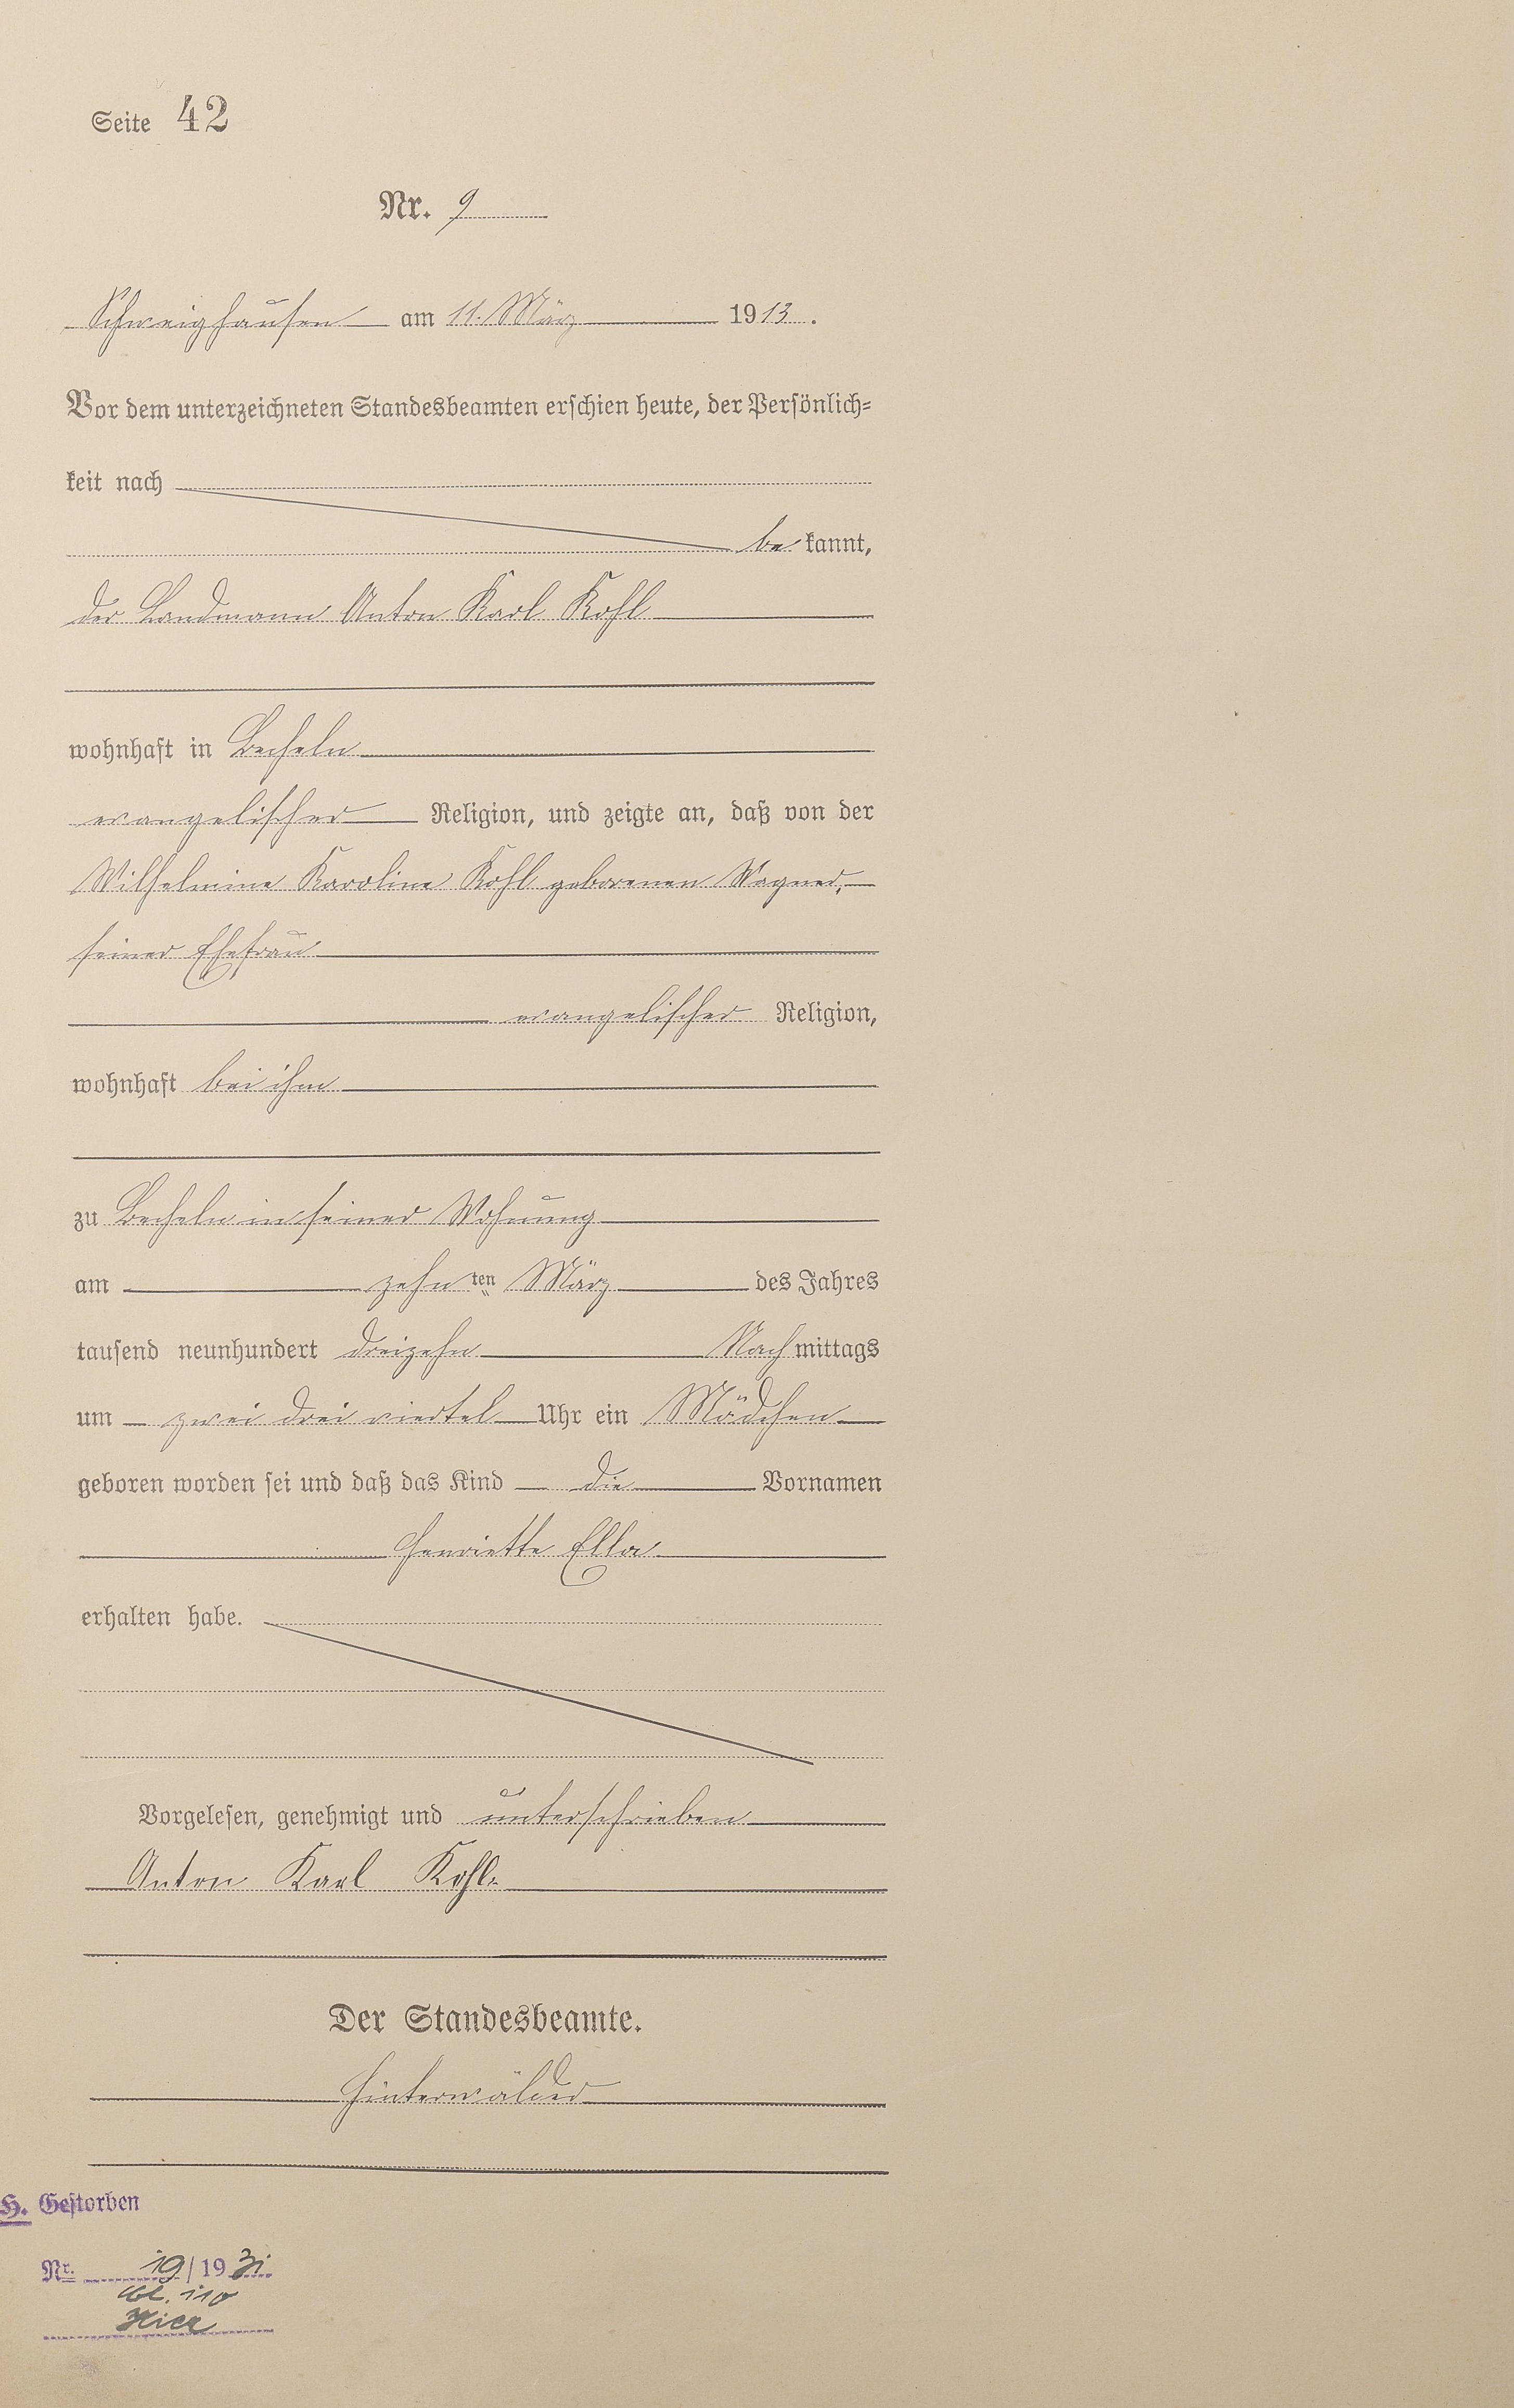 Seite 42
Nr. 9
Schweighausen am 11. März 1913.
Vor dem unterzeichneten Standesbeamten erschien heute, der Persönlich=
keit nach
be kannt,
der Landmann Anton Karl Kohl
wohnhaft in Becheln
evangelischer Religion, und zeigte an, daß von der
Wilhelmine Karoline Kohl geborenen Wagner,
seiner Ehefrau
evangelischer Religion,
wohnhaft bei ihm
zu Becheln in seiner Wohnung
am zehnten März des Jahres
tausend neunhundert dreizehn Nachmittags
um zwei drei viertel Uhr ein Mädchen
geboren worden sei und daß das Kind die Vornamen
Henriette Ella
erhalten habe.
Vorgelesen, genehmigt und unterschrieben
Anton Karl Kohl.
Der Standesbeamte.
Hinterwälder
H. Gestorben
Nr. 19/1931
Hier